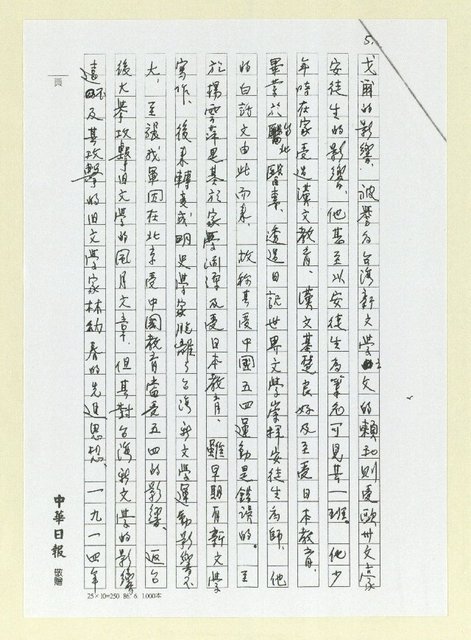 5.
戈爾的影響。被譽為台灣新文學之父的賴和則受歐州文豪
安徒生的影響，他甚至以安徒生為筆名可見其一斑。他少
年時在家受過漢文教育、漢文基礎良好及至受日本教育，
畢業於台北醫專，透過日訳世界文學崇拜安徒生為師，他
的白話文由此而來。故称其受中國五四運動是錯誤的。至
於楊雲萍是基於家學淵源及受日本教育，雖早期有新文學
寫作，後來轉變成明史學家脫離了台湾新文學運動影響不
大，至張我軍因在北京受中國教育當受五四的影響。返台
後大舉攻擊旧文學的風月文章，但其對台湾新文學的影響
遠不及其攻擊的旧文學家林幼春的先進思想。一九一四年
中華日報 敬贈
25×10=250 86. 6 1,000本